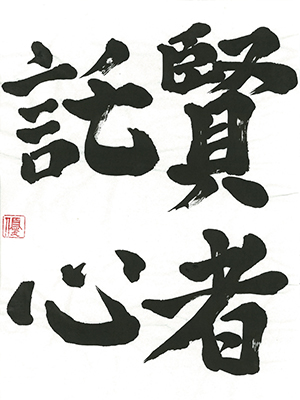 賢者
託心
優